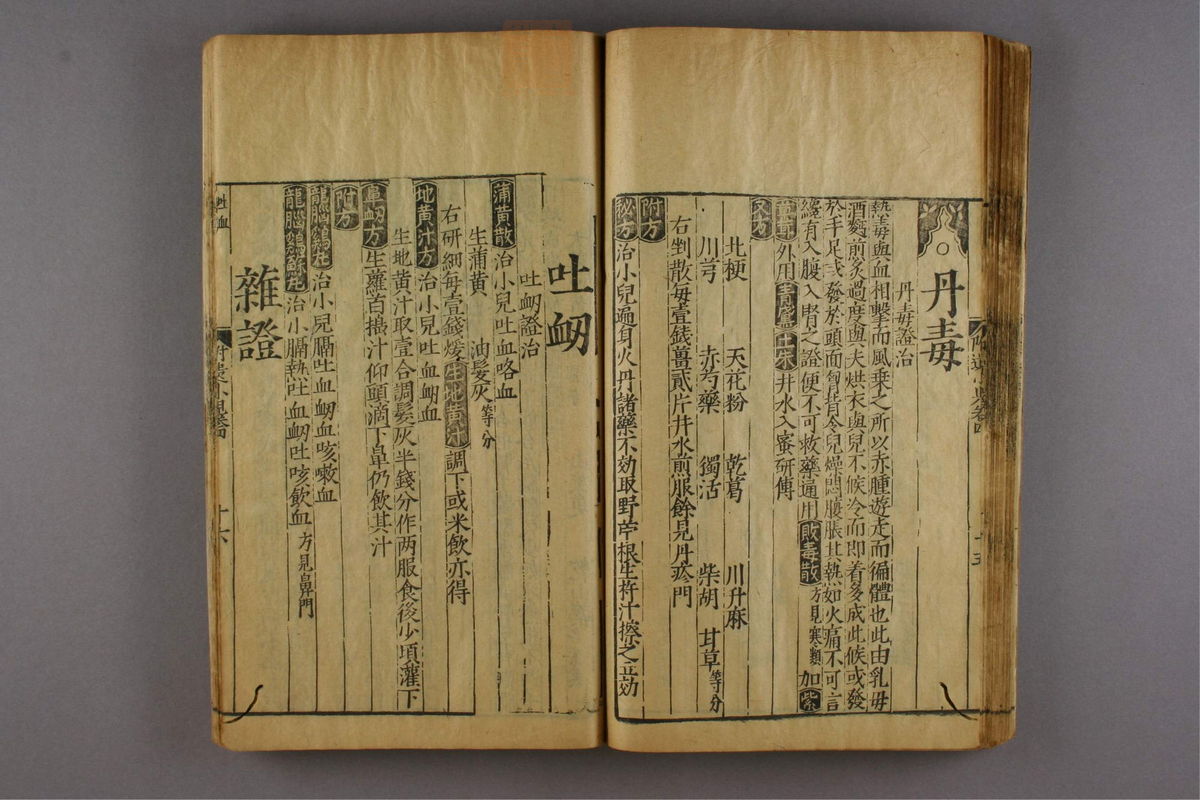 丹毒
丹毒證治
熱毒與血相擊而風乗之所以赤腫遊走而徧體也此由乳母
酒麪煎炙過度與夫烘衣與兒不候冷而即着多成此候或發
於手足或發於頭面胷背令兒燥悶腹脹其熱如火痛不可言
纔有入腹入腎之證便不可救藥通用敗毒散方見寒類加紫
草茸外用青黛土朱井水入蜜研傅
又方
北梗 天花粉 乾葛 川升麻
川芎 赤芍藥 獨活 柴胡 甘草等分
右剉散每壹錢薑貳片井水煎服餘見丹疹門
附方
秘方治小兒遍身火丹諸藥不効取野芦根生杵汁擦之立効
吐衂
吐衂證治
蒲黄散治小兒吐血咯血
生蒲黄 油髮灰等分
右研細每壹錢煖生地黄汁調下或米飲亦得
地黄汁方治小兒吐血衂血
生地黄汁取壹合調髮灰半錢分作两服食後少項灌下
鼻衂方生蘿蔔搗汁仰頭滴下鼻仍飲其汁
附方
龍腦鷄 治小兒膈吐血衂血咳嗽血
龍腦鷄蘇丸治小膈熱吐血衂吐咳飲血方見鼻門
雜證
吐血
十六